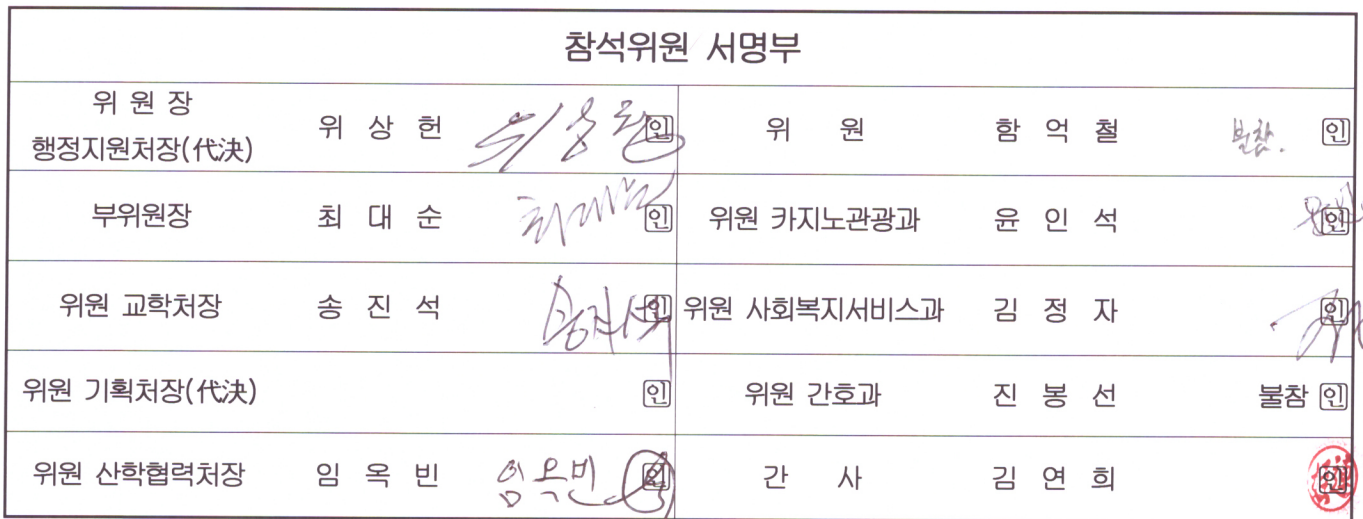 참석위원 서명부
위 원 장
행정지원처장(代決) 위 상 헌 위상헌 인 위 원 함 억 철 불참. 인
부위원장 최 대 순 최대순 인 위원 카지노관광과 윤 인 석 인
위원 교학처장 송 진 석 송진석 인 위원 사회복지서비스과 김 정 자 인
위원 기획처장(代決) 인 위원 간호과 진 봉 선 불참 인
위원 산학협력처장 임 옥 빈 임옥빈 인 간 사 김 연 희 인